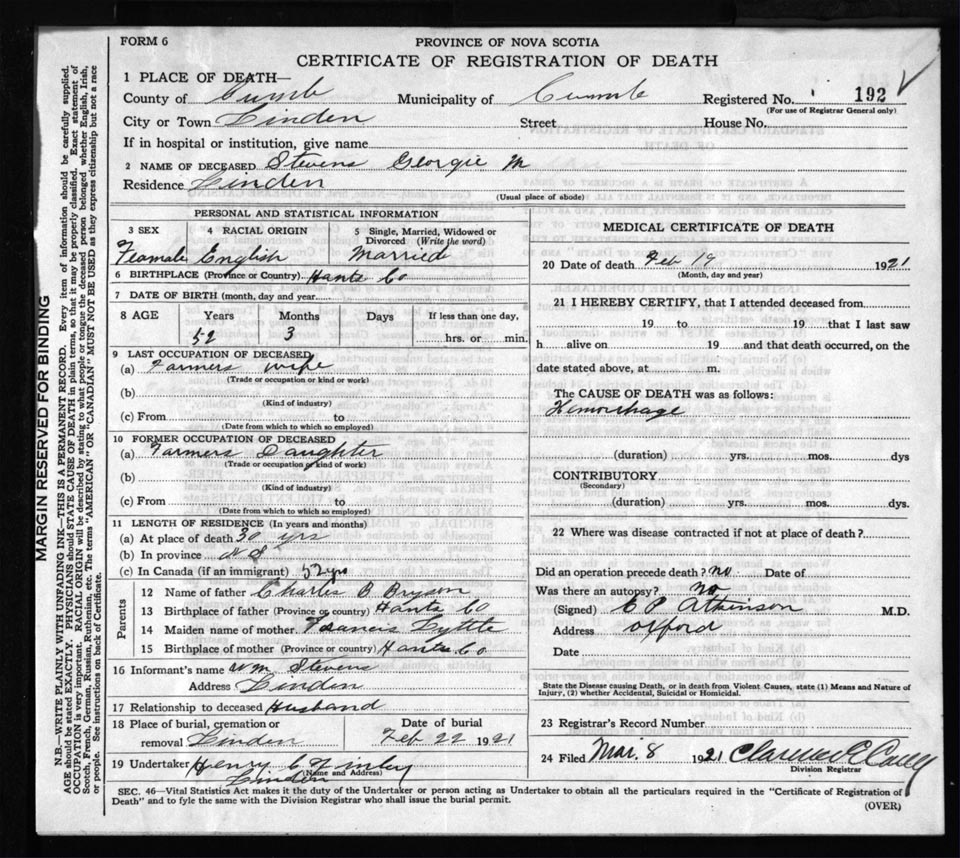 FORM 6
PROVINCE OF NOVA SCOTIA
CERTIFICATE OF REGISTRATION OF DEATH
1 PLACE OF DEATH—
County of Cumb Municipality of Cumb Registered No. 192
(For use of Registrar General only)
City or Town Linden Street House No.
If in hospital or institution, give name
2 NAME OF DECEASED Stevens Georgie M
Residence Linden
(Usual place of abode)
PERSONAL AND STATISTICAL INFORMATION
3 SEX 4 RACIAL ORIGIN 5 Single, Married, Widowed or
Divorced (Write the word)
Feamale English Married
6 BIRTHPLACE (Province or Country) Hants Co
7 DATE OF BIRTH (month, day and year)
8 AGE Years Months Days If less than one day,
52 3 hrs. or min.
9 LAST OCCUPATION OF DECEASED
(a) Farmers wife
(Trade or occupation or kind or work)
(b)
(Kind of industry)
(c) From to
(Date from which to which so employed)
10 FORMER OCCUPATION OF DECEASED
(a) Farmers Daughter
(Trade or occupation or kind of work)
(b)
(Kind of industry)
(c) From to
(Date from which to which so employed)
11 LENGTH OF RESIDENCE (In years and months)
(a) At place of death 30 yrs
(b) In province N S
(c) In Canada (if an immigrant) 52 yrs
Parents
12 Name of father Charles B Bryson
13 Birthplace of father (Province or country) Hants Co
14 Maiden name of mother Francis Lyttle
15 Birthplace of mother (Province or country) Hants Co
16 Informant's name Wm Stevens
Address Linden
17 Relationship to deceased Husband
18 Place of burial, cremation or Date of burial
removal Linden Feb 22 1921
19 Undertaker Henry C Finley
(Name and Address)
Linden
MEDICAL CERTIFICATE OF DEATH
20 Date of death Feb 19 1921
(Month, day and year)
21 I HEREBY CERTIFY, that I attended deceased from
19 to 19 that I last saw
h alive on 19 and that death occurred, on the
date stated above, at m.
The CAUSE OF DEATH was as follows:
Hemorrhage
(duration) yrs. mos. dys
CONTRIBUTORY
(Secondary)
(duration) yrs. mos. dys.
22 Where was disease contracted if not at place of death?
Did an operation precede death? no. Date of
Was there an autopsy? no
(Signed) C P Atkinson M.D.
Address Oxford
Date
State the Disease causing Death, or in death from Violent Causes, state (1) Means and Nature of
Injury, (2) whether Accidental, Suicidal or Homicidal.
23 Registrar's Record Number
24 Filed Mar. 8 1921 Clarence C
Division Registrar
SEC. 46—Vital Statistics Act makes it the duty of the Undertaker or person acting as Undertaker to obtain all the particulars required in the "Certificate of Registration of
Death" and to fyle the same with the Division Registrar who shall issue the burial permit.
(OVER)
MARGIN RESERVED FOR BINDING
N.B.—WRITE PLAINLY WITH UNFADING INK—THIS IS A PERMANENT RECORD. Every item of information should be carefully supplied.
AGE should be stated EXACTLY. PHYSICIANS should STATE CAUSE OF DEATH in plain terms, so that it may be properly classified. Exact statement of
OCCUPATION is very important. RACIAL ORIGIN will be described by stating to what people or tongue the deceased person belonged whether English, Irish,
Scotch, French, German, Russian, Ruthenian, etc. The terms "AMERICAN" OR "CANADIAN" MUST NOT BE USED as they express citizenship but not a race
or people. See instructions on back of Certificate.